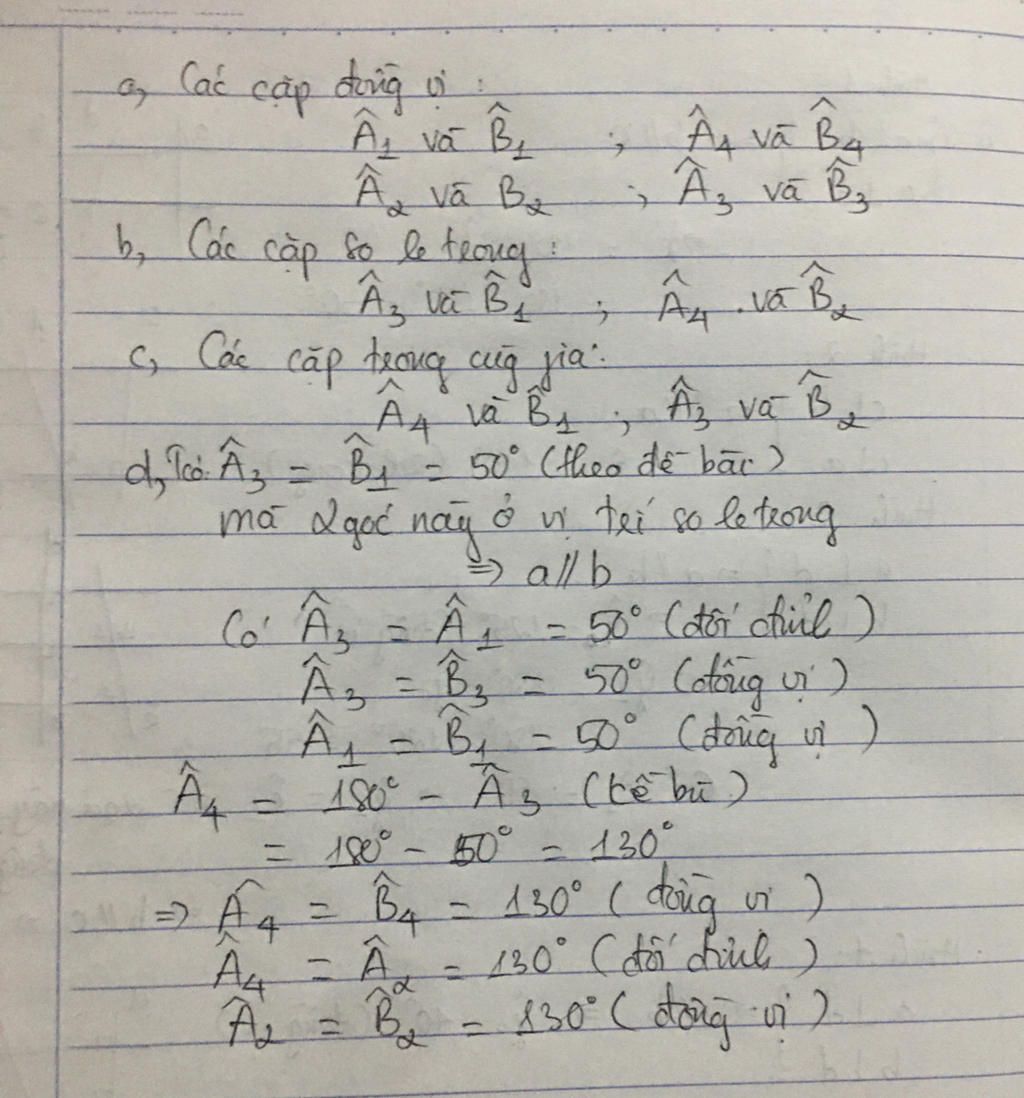 a, Các cặp đồng vị :
Â₁ và B̂₁ ; Â₄ và B̂₄
Â₂ và B₂ ; Â₃ và B̂₃
b, Các cặp so le trong :
Â₃ và B̂₁ ; Â₄ và B̂₂
c, Các cặp trong cùg fía :
Â₄ và B̂₁ ; Â₃ và B̂₂
d, Tcó: Â₃ = B̂₁ = 50° (theo đề bài)
mà 2 góc này ở vị trí so le trong
=> a // b
Có Â₃ = Â₁ = 50° (đối đỉnh)
Â₃ = B̂₃ = 50° (đồng vị)
Â₁ = B̂₁ = 50° (đồng vị)
Â₄ = 180° - Â₃ (kề bù)
= 180° - 50° = 130°
=> Â₄ = B̂₄ = 130° (đồng vị)
Â₄ = Â₂ = 130° (đối đỉnh)
Â₂ = B̂₂ = 130° (đồng vị)